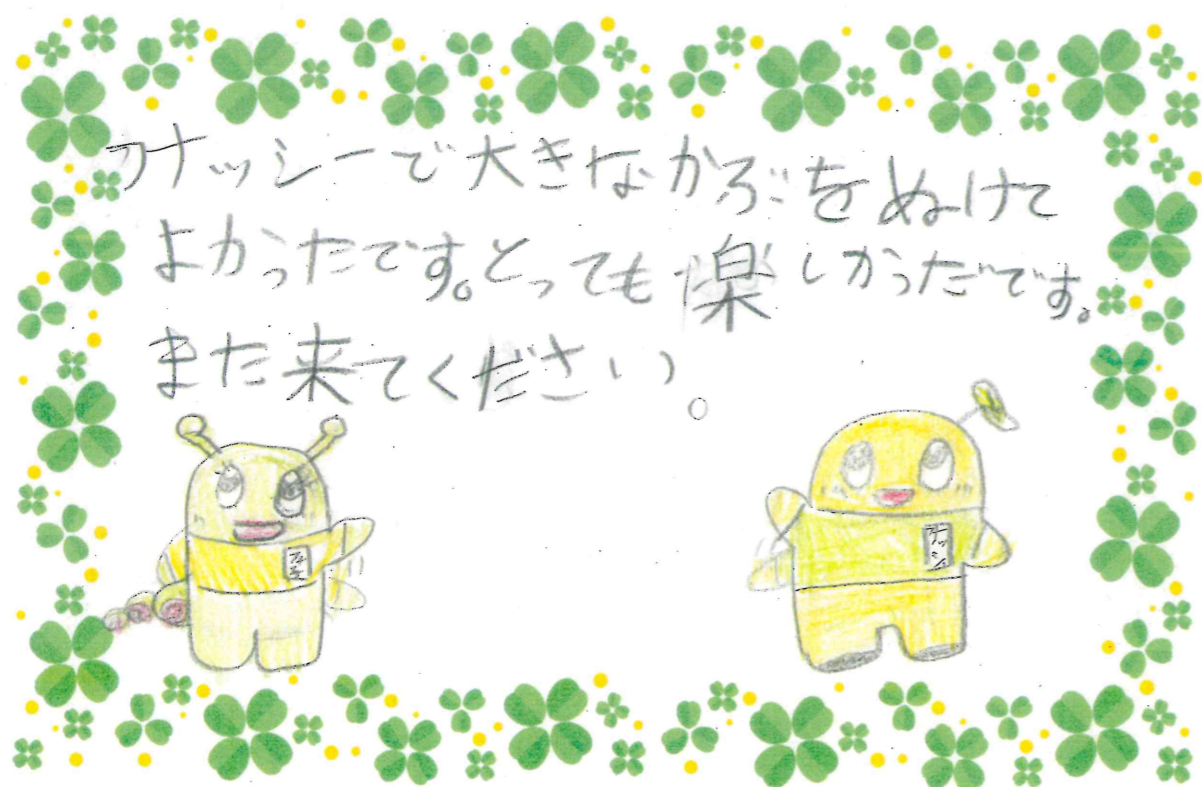 フナッシーで大きなかぶをぬけて
よかったです。とっても楽しかっだです。
また来てください。
フナッシー